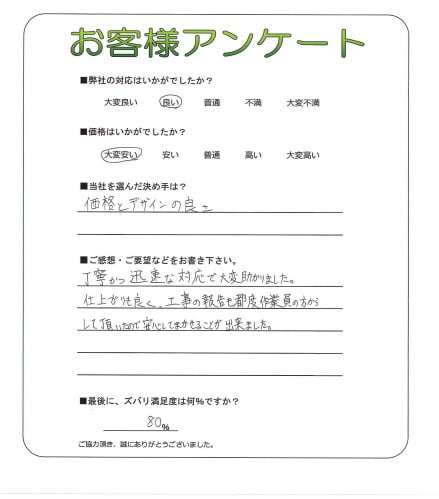 お客様アンケート
■弊社の対応はいかがでしたか?
大変良い 良い 普通 不満 大変不満
■価格はいかがでしたか?
大変安い 安い 普通 高い 大変高い
■当社を選んだ決め手は?
価格とデザインの良さ
■ご感想・ご要望などをお書き下さい。
丁寧かつ迅速な対応で大変助かりました。
仕上がりも良く、工事の報告も都度作業員の方から
して頂いたので安心してまかせることが出来ました。
■最後に、ズバリ満足度は何%ですか?
80%
ご協力頂き、誠にありがとうございました。